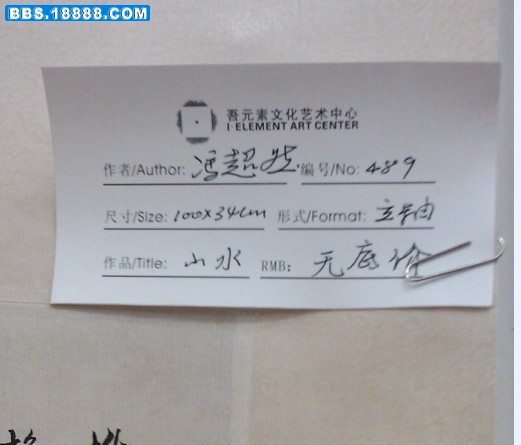 BBS.18888.COM
吾元素文化艺术中心
I·ELEMENT ART CENTER
作者/Author: 冯超然 编号/No: 489
尺寸/Size: 100x34cm 形式/Format: 立轴
作品/Title: 山水 RMB: 无底价